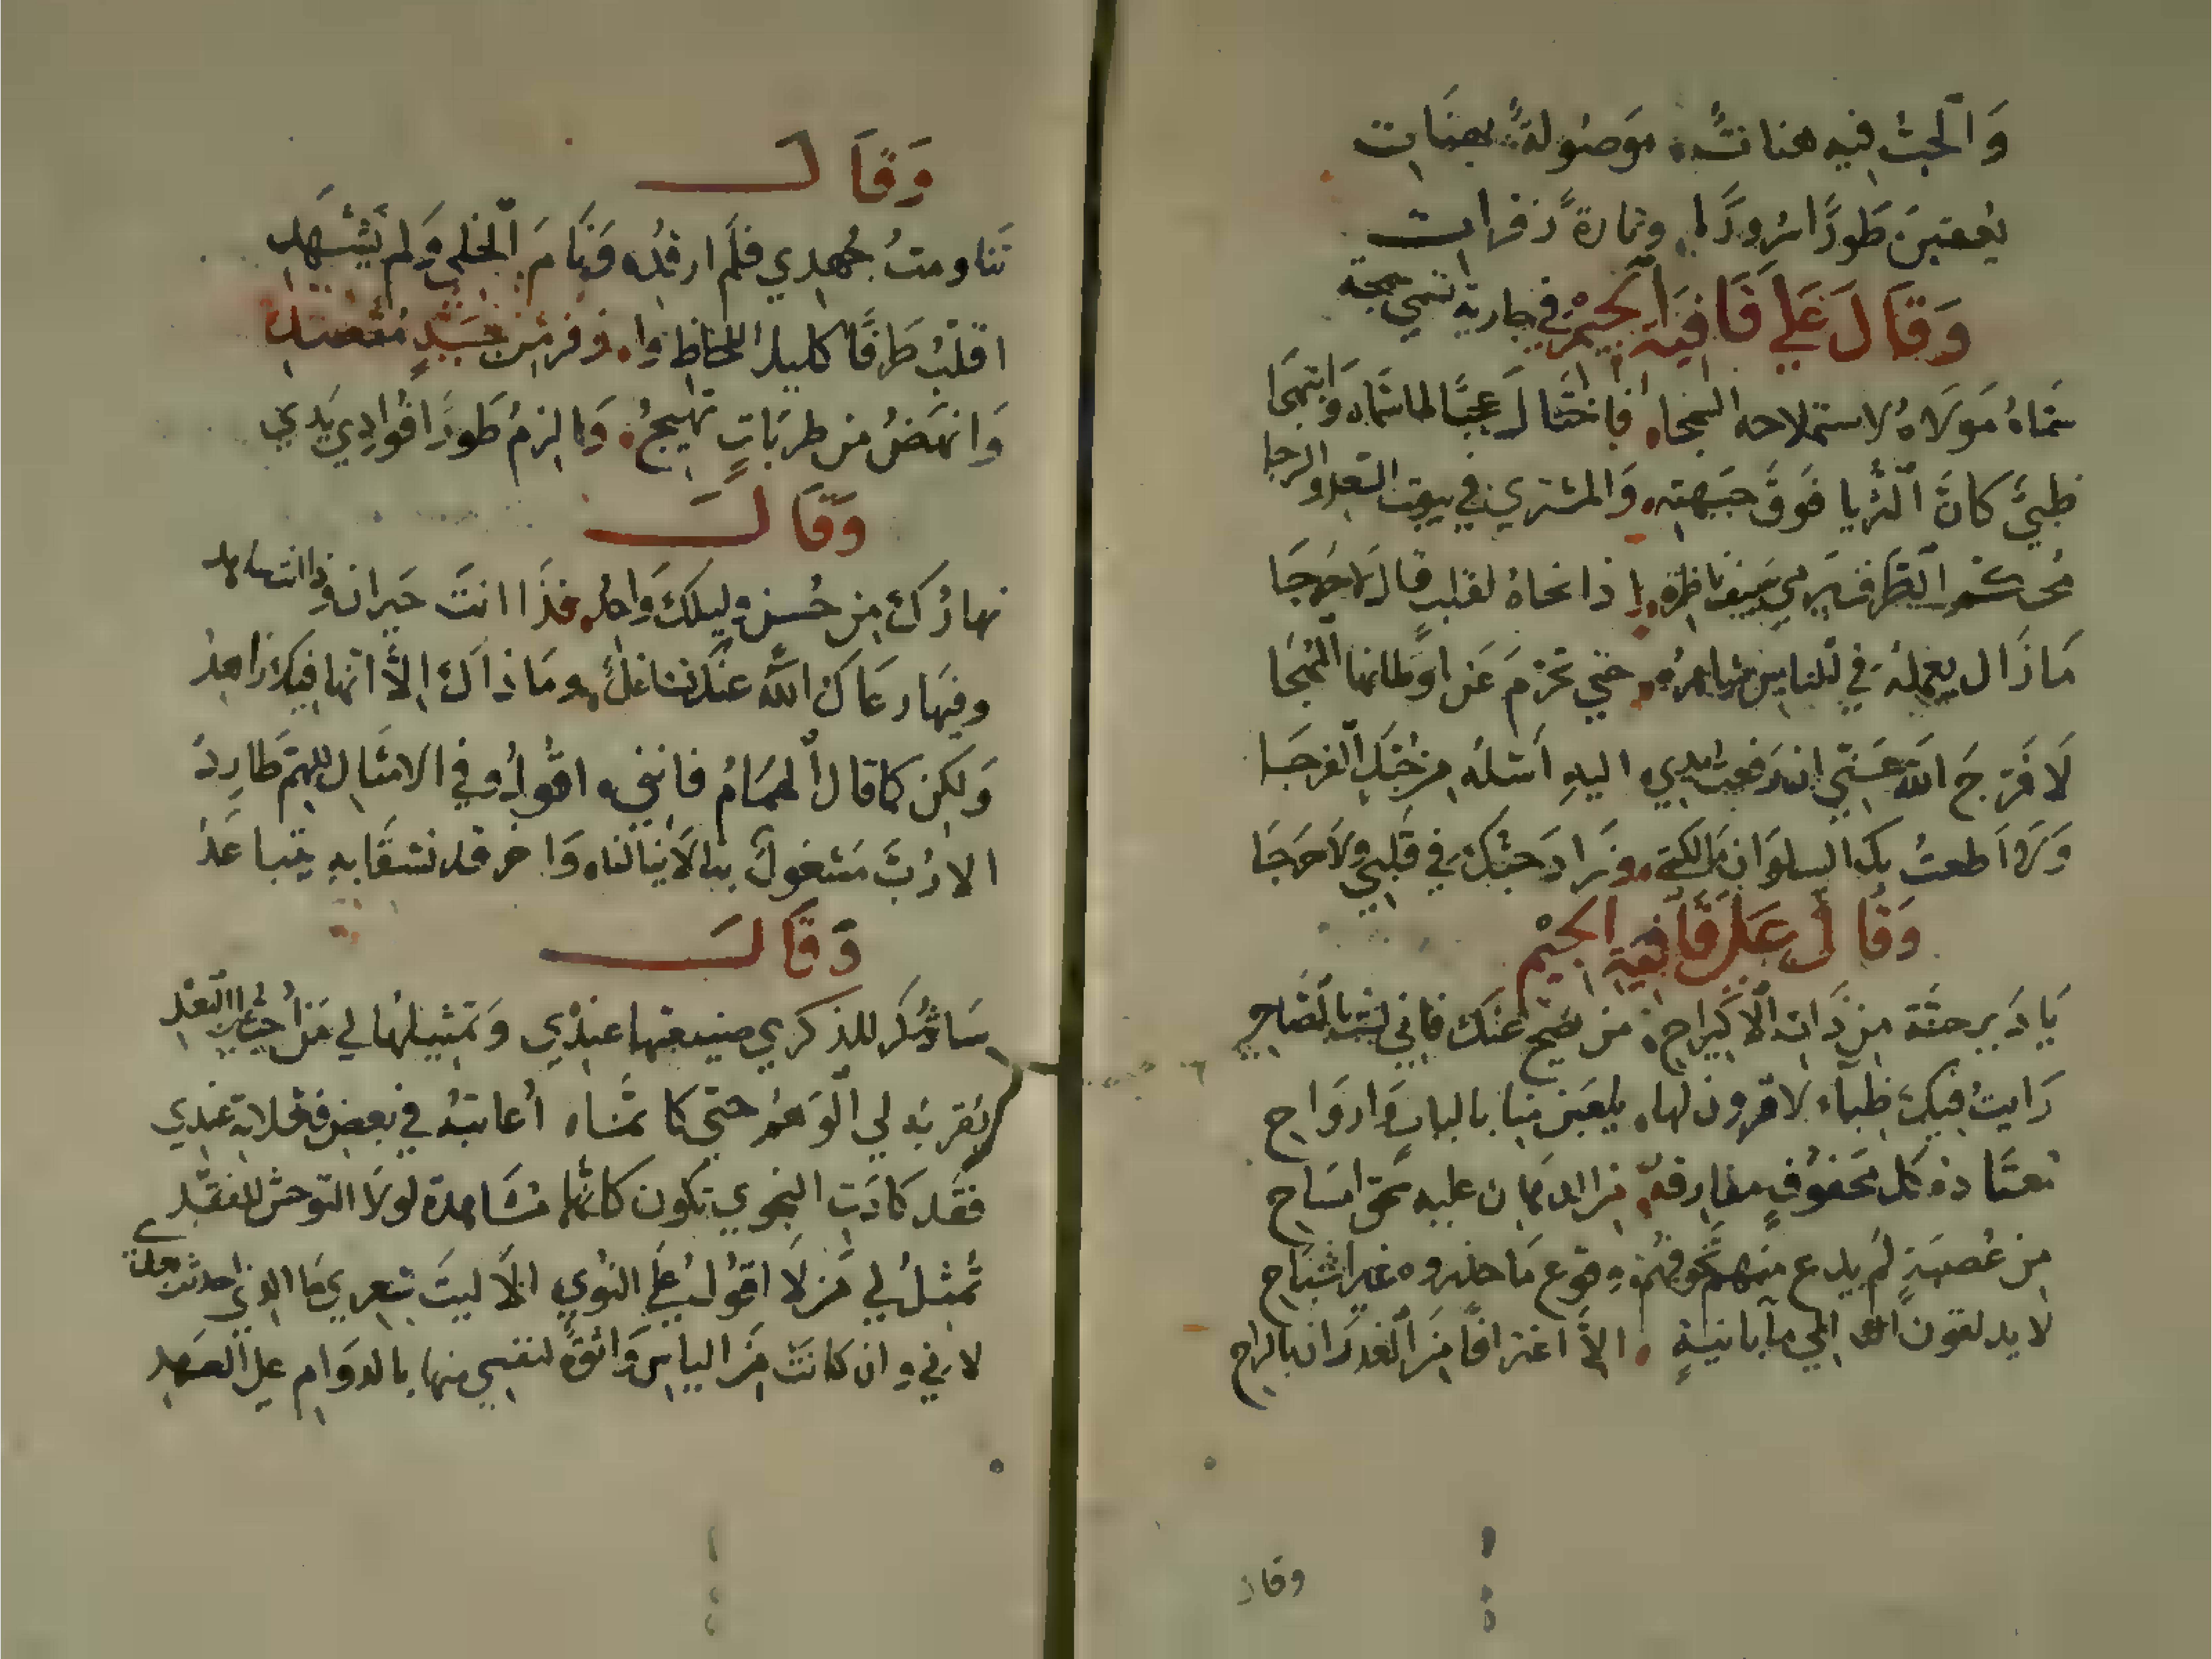 وَالحبُّ فيه هناتٌ موَصُولةٌ بهنَات
يُعقبنَ طَورًا سُرورًا وتارةً زفرات
وَقَالَ عَلى قَافِيَة الجيْم في جارية تسمى بهجة
سَمَّاهُ مَولاهُ لاستملاحه السمجا فَاختَالَ عجبًا لما سَمَّاه وَابتهجَا
ظبيٌ كَانَّ الثريا فَوقَ جبَهته وَالمشتري في بيوت السَّعد والرجا
مُحكّم الطَّرف يَرمي سَيف ناظره اذا نحَاهُ لقلب قال لَا حَرجَا
مَا زَال يعملهُ في الناس شاهرُه حتي تخرّمَ عَن اوطانها المُهجَا
لَا فَرّجَ اللّه عَنّي ان رَفعت يدي اليهِ أسئلهُ من حُبّك الفرجَا
وَلا اَطعتُ بك السلوَان مالكتي وزادَ حبّك في قَلبي ولا حَرَجَا
وَقَالَ عَلى قَافية الجيْم
يَا دَير حنّة من ذَات الأكيراح من يَصحُ عَنك فاني لستُ بالصَّاحِي
رَايتُ فيكَ ظباَء لا قرون لها يلعَبن منا بالبابٍ وَارواح
دَع التشاغل محَفوُفٍ مفارقهُ من الدهان عليه سحق امسَاح
مِن عُصبةٍ لم يدع منهم تخوفهم وقوع مَا حذروه غير اشبَاح
لا يدلفون الى ماٍ بانيةٍ الاَّ اغترافًا مِنَ الغدرَان بالراح
وقال
وَقَالَ
تَناومتُ جُهدي فلَم ارقُد وَنَامَ الخلي وَلم يَسْهَد
اقلّبُ طَرفًا كليل اللحَاظ وَازفر من حَسَدٍ مُقصَد
وَانهَضُ من طربَاتٍ تهيجُ وَالزمُ طَورًا فُوادِي يَدي
وَقَالَ
نهارُكَ مِن حُسن وليلكَ وَاحدُ فذَا انتَ حَيران وذا انت ساهد
وفيهَا رعَاكَ اللّهُ عنكَ تشاغلٌ وَمَا ذاكَ الاَّ انها فيكَ زاهدُ
وَلكن كما قالَ الهمَامُ فانني اقولُ وفي الامثال للهمّ طَارِدُ
الا رُبَّ مَشغولٍ بنا لَا ينالنا وَاخر قد نشقَا به يتباعَدُ
وَقَالَ
سَاشكُر للذكري صنيعتها عندْي وَتمثيلهُا لي مَن أُحبُ علي البُعْد
يُقربهُ لي الوَهمُ حتي كانمَّا اُعَاتبُهُ في بعض فعلاته عندي
فقَد كَادَتِ النجوي تكون كَانَّها مُشَاهدة لولَا التوحشُ للفقد
تُمثلُ لي مَن لَا اقوُلُ عَلَى النوي الاَّ ليتَ شعري مَا الذي احدثت بعدي
لاني وان كانَتَ مِنَ الياس وَاثقةً لنفسي منها بالدوَام على العَهد